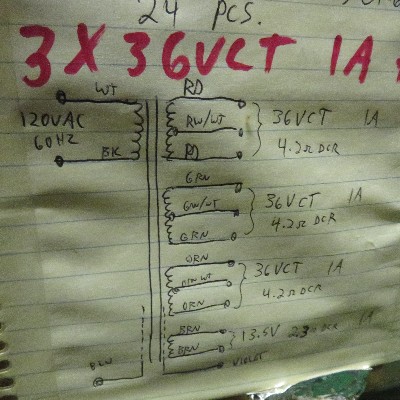 24 PCS.
3 X 36VCT 1A
WT RD
120VAC RW/WT 36VCT 1A
60HZ BK RD 4.2Ω DCR
GRN
GW/WT 36VCT 1A
GRN 4.2Ω DCR
ORN
WT 36VCT 1A
ORN 4.2Ω DCR
BRN 13.5V 2.3Ω DCR 1A
BRN
BLU VIOLET